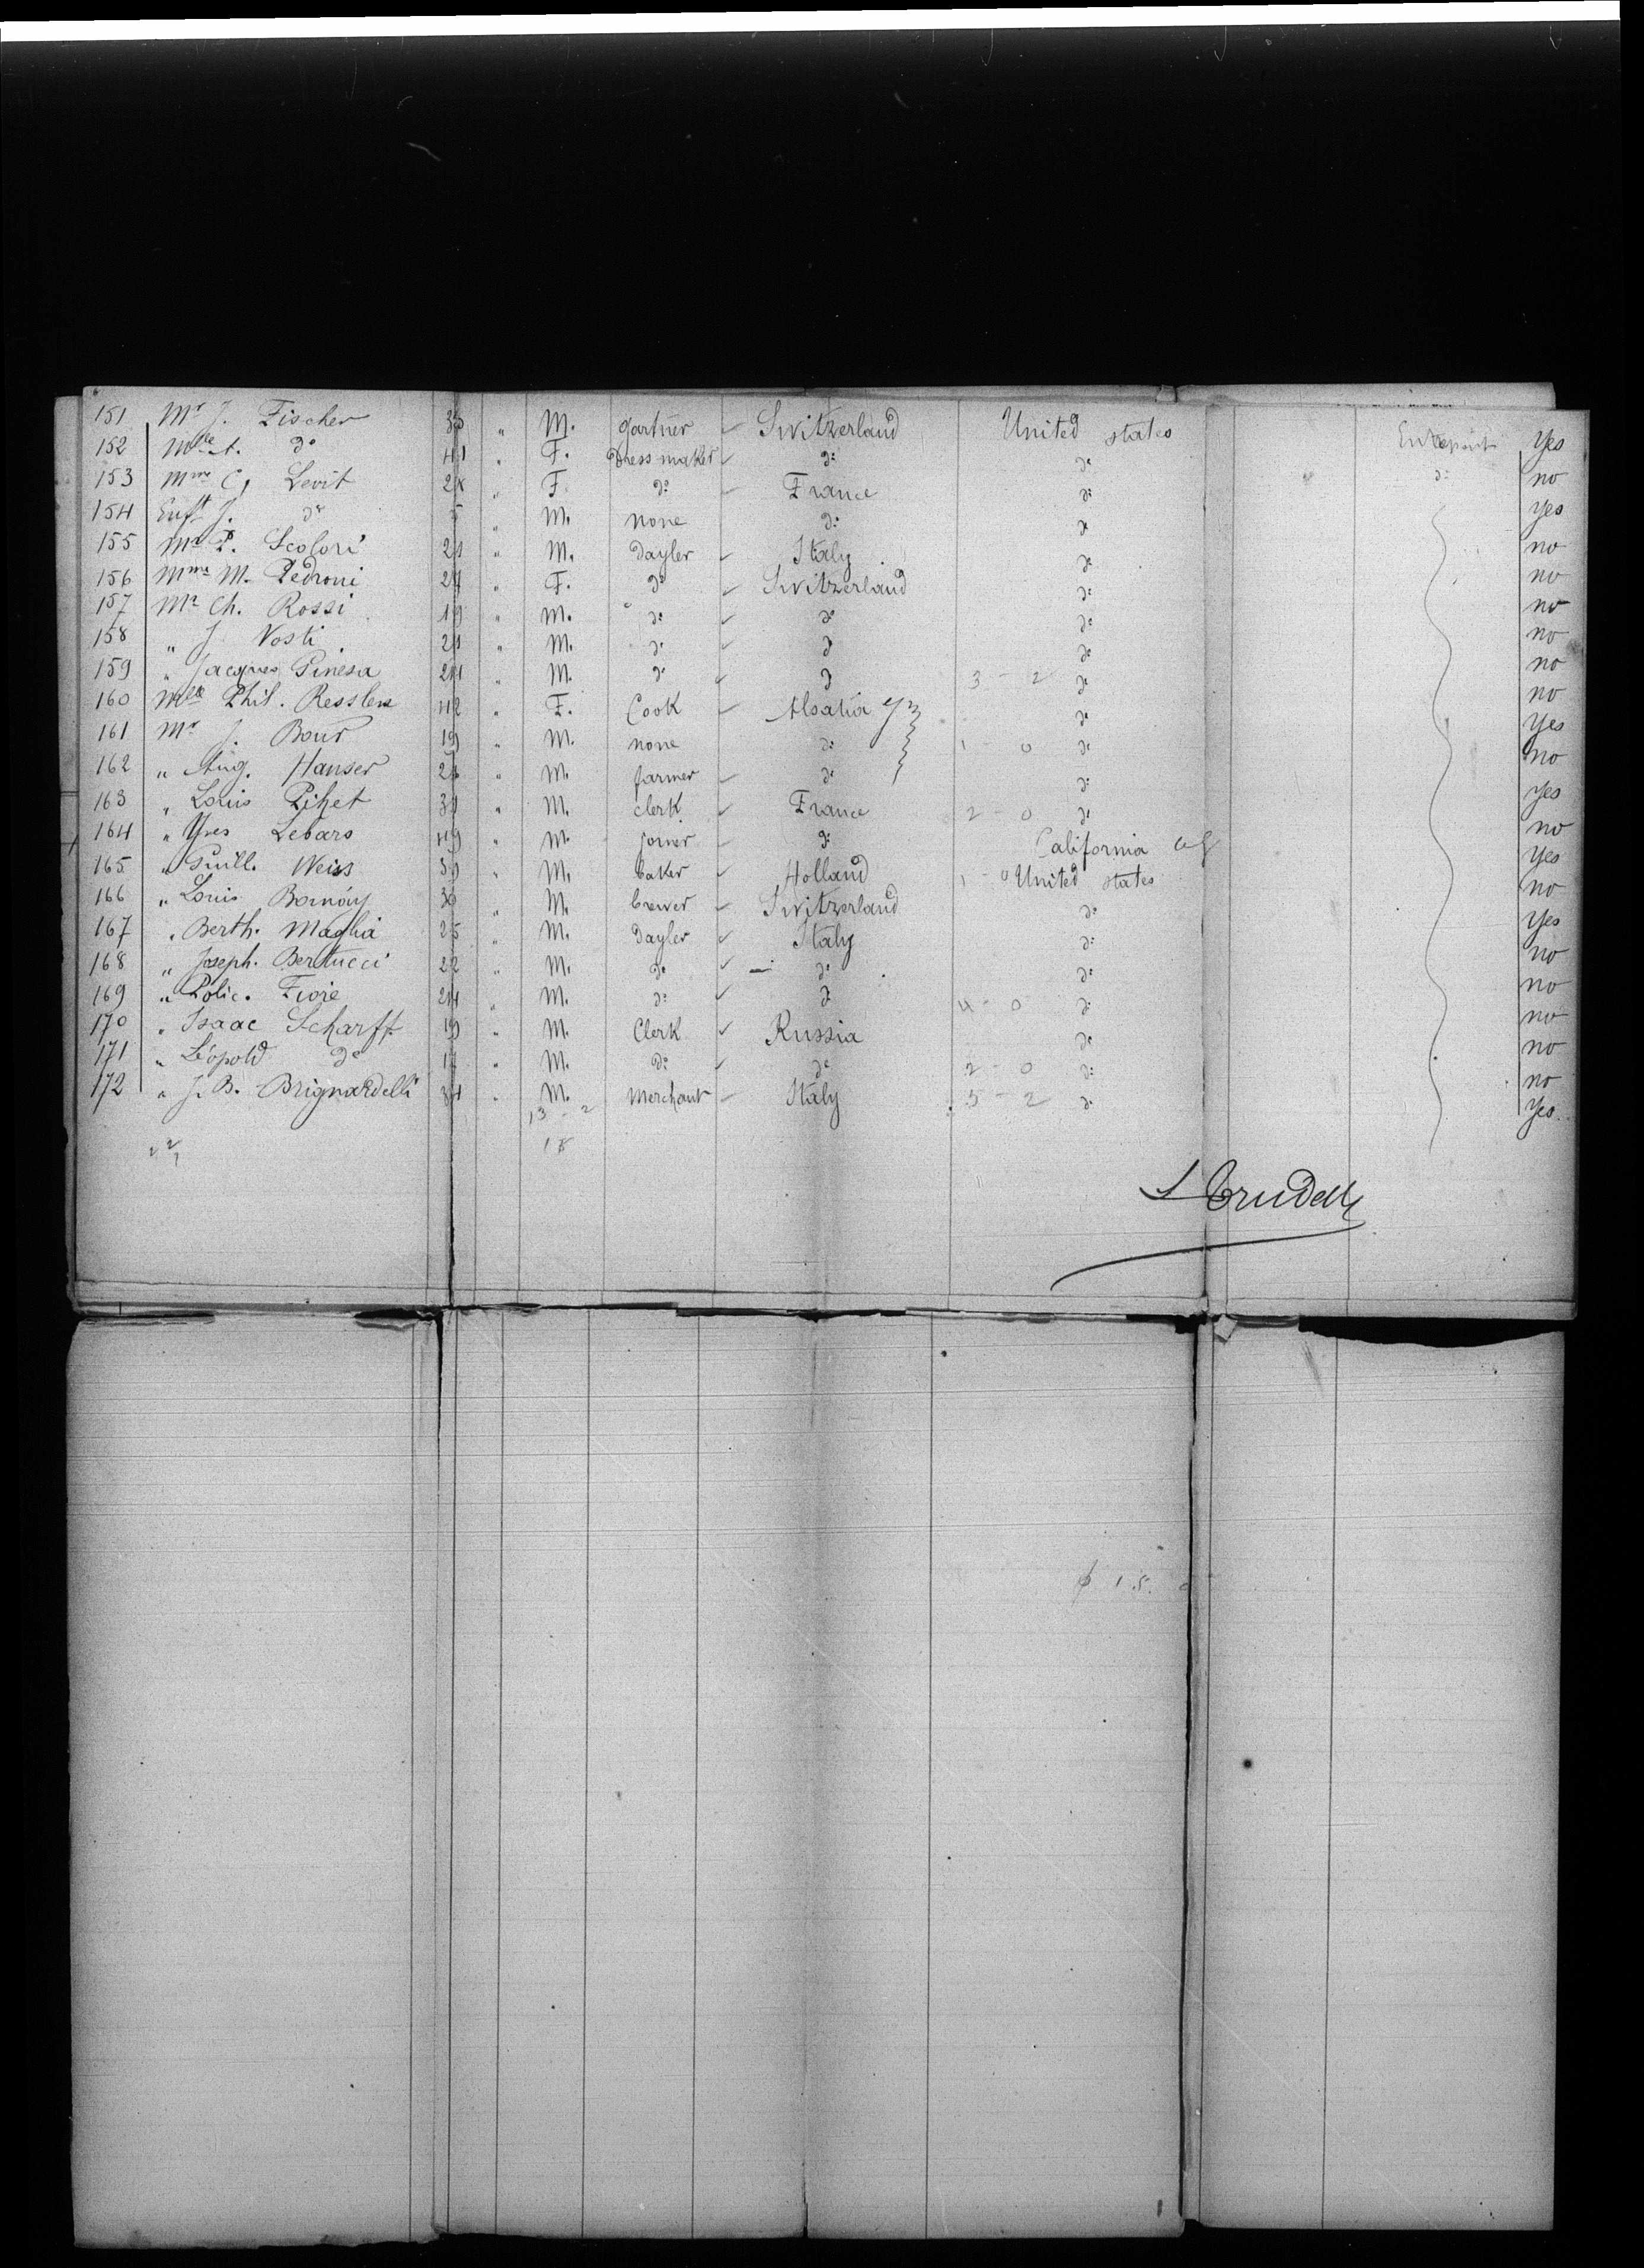 151 Mr J. Fischer 35 " M. gartner Switzerland United states Entrepont Yes
152 Mlle A. do 41 " F. Dress maker do do do no
153 Mme C, Levit 28 " F. do France do yes
154 Enft J. do 5 " M. none do do no
155 Mr P. Scolori 21 " M. Dayler Italy do no
156 Mme M. Pedroni 24 " F. do Switzerland do no
157 Mr Ch. Rossi 19 " M. do do do no
158 " J. Vosti 21 " M. do do do no
159 " Jacques Pinesa 24 " M. do do 3 - 2 do no
160 Mlle Phil. Resslen 42 " F. Cook Alsatia do Yes
161 Mr J. Bour 19 " M. none do 1 - 0 do no
162 " Aug. Hanser " M. farmer do do yes
163 " Louis Pihet 31 " M. clerk France 2 - 0 do no
164 " Yves Lebars 49 " M. joiner do California Yes
165 " Guill. Weiss 39 " M. baker Holland 1 - 0 United states no
166 " Louis Bornóy 36 " M. brewer Switzerland do Yes
167 " Berth. Maglia 25 " M. Dayler Italy do no
168 " Joseph. Bertucci 22 " M. do do do no
169 " Polic. Fiore 24 " M. do do 4 - 0 do no
170 " Isaac Scharff 19 " M. Clerk Russia do no
171 " Léopold do 17 " M. do do 2 - 0 do no
172 " J. B. Brignardelli 34 " M. Merchant Italy 5 - 2 do Yes
13 - 2
18